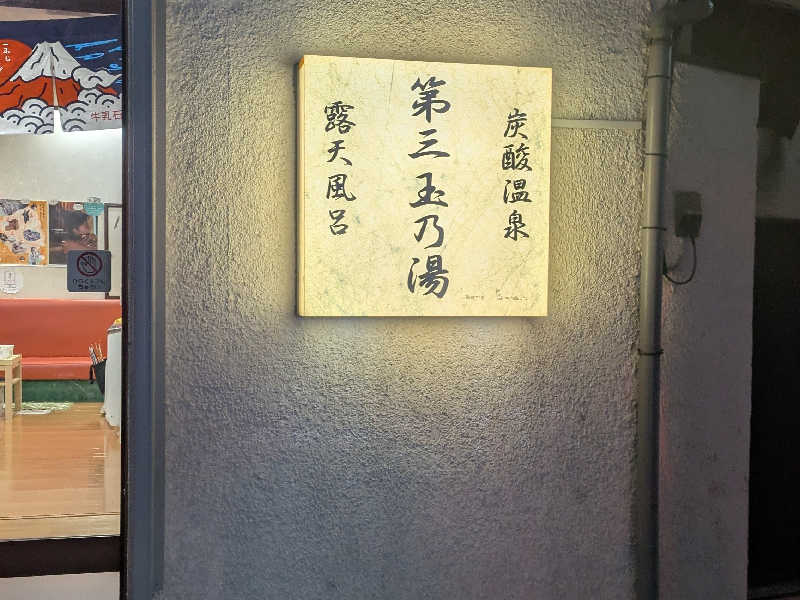 炭酸温泉
第三玉乃湯
露天風呂
牛乳石